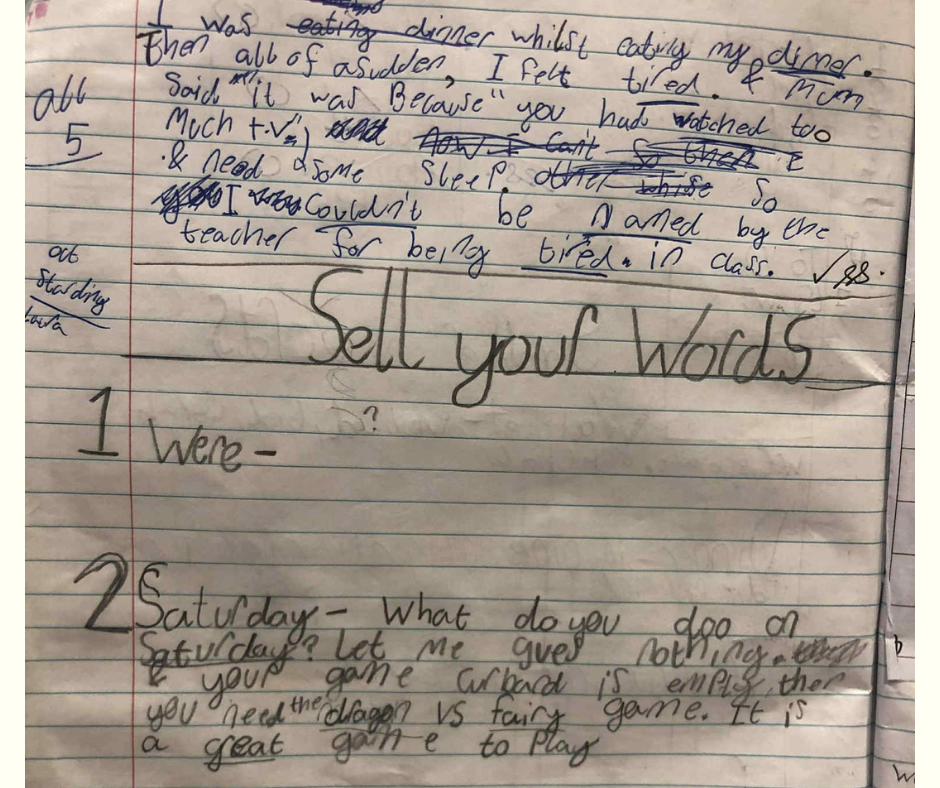 I was eating dinner whilst eating my dinner.
then all of asudden, I felt tired. & Mum
all
Said "it was Because" you had watched too
5
Much t.v.") and now I can't so then I
& need a some sleep. other so
I couldn't be Named by the
teacher for being tired. in class.
out
standing
Sell your Words
1 Were - ?
2 Saturday - What do you doo on
Saturday? Let Me gues nothing.
& your game curbard is empty then
you need the dragon vs fairy game. It is
a great game to Play